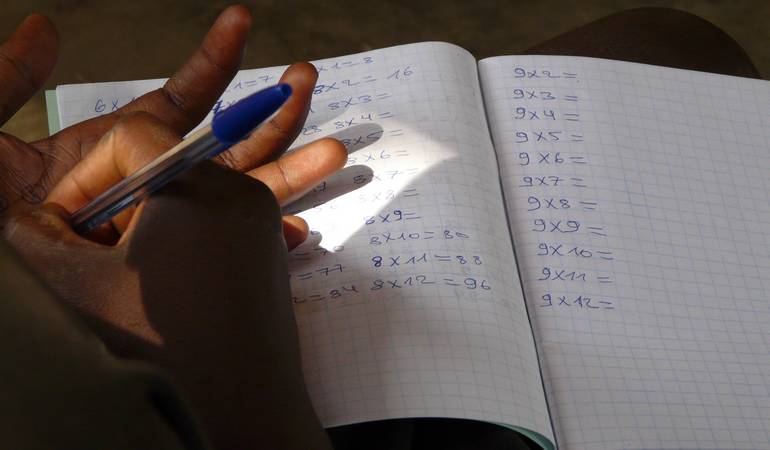 6x
x1=7
x1=8
8x2= 16
8x3=
28 8x4=
8x5=
8x6=
8x7=
8x8=
8x9=
=70 8x10=80
=77 8x11=88
2=84 8x12=96
9x2=
9x3=
9x4=
9x5=
9x6=
9x7=
9x8=
9x9=
9x10=
9x11=
9x12=